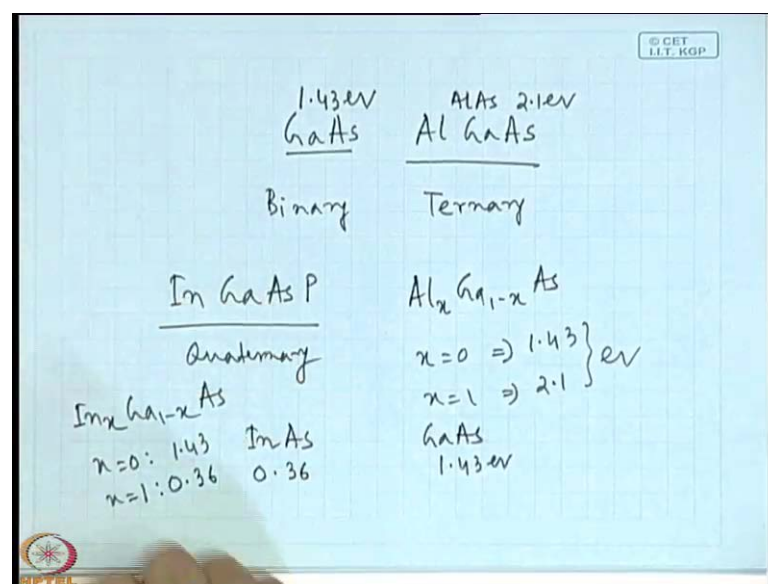 © CET
I.I.T. KGP
1.43 ev AlAs 2.1ev
GaAs Al GaAs
Binary Ternary
In GaAs P
Quaternary
InxGa1-xAs
x=0: 1.43 InAs
x=1: 0.36 0.36
AlxGa1-xAs
x=0 => 1.43 } ev
x=1 => 2.1
GaAs
1.43 ev
NPTEL